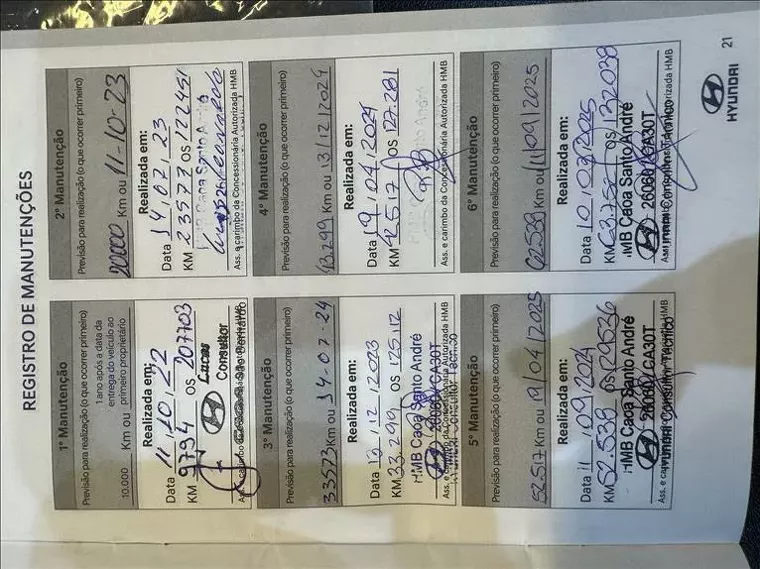 REGISTRO DE MANUTENÇÕES
1ª Manutenção
Previsão para realização (o que ocorrer primeiro)
10.000 Km ou 1 ano após a data da entrega do veículo ao primeiro proprietário
Realizada em:
Data 11/10/22
KM 9794 OS 207703
Lucas
Consultor
São Bernardo
2ª Manutenção
Previsão para realização (o que ocorrer primeiro)
20000 Km ou 11-10-23
Realizada em:
Data 14/07/23
KM 23573 OS 122451
Caoa Santo André
Ass. e carimbo da Concessionária Autorizada HMB
3ª Manutenção
Previsão para realização (o que ocorrer primeiro)
33573 Km ou 14-07-24
Realizada em:
Data 13/12/2023
KM 33.299 OS 125.112
HMB Caoa Santo André
26060/CA30T
Hyundai Consultor Técnico
4ª Manutenção
Previsão para realização (o que ocorrer primeiro)
43.299 Km ou 13/12/2024
Realizada em:
Data 19/04/2024
KM 42517 OS 127.281
Ass. e carimbo da Concessionária Autorizada HMB
5ª Manutenção
Previsão para realização (o que ocorrer primeiro)
52.517 Km ou 19/04/2025
Realizada em:
Data 11/09/2024
KM 52.538 OS 129536
HMB Caoa Santo André
26060/CA30T
Hyundai Consultor Técnico
6ª Manutenção
Previsão para realização (o que ocorrer primeiro)
62.538 Km ou 11/09/2025
Realizada em:
Data 10/03/2025
OS 132038
HMB Caoa Santo André
26060/CA30T
Consultor Técnico
HYUNDAI
21